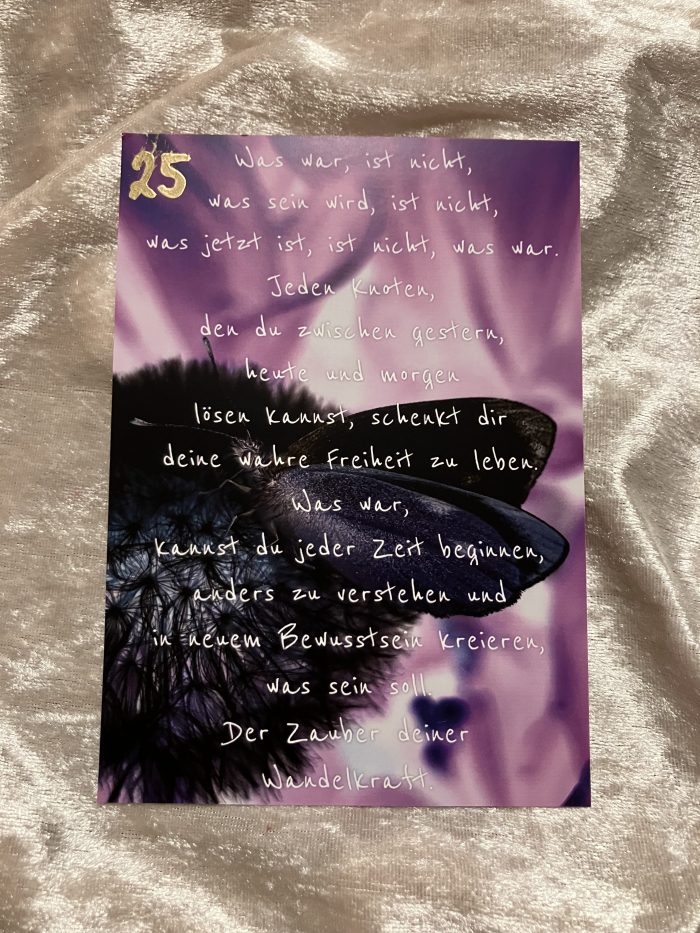 25
Was war, ist nicht,
was sein wird, ist nicht,
was jetzt ist, ist nicht, was war.
Jeden Knoten,
den du zwischen gestern,
heute und morgen
lösen kannst, schenkt dir
deine wahre Freiheit zu leben.
Was war,
kannst du jeder Zeit beginnen,
anders zu verstehen und
in neuem Bewusstsein kreieren,
was sein soll.
Der Zauber deiner
Wandelkraft.